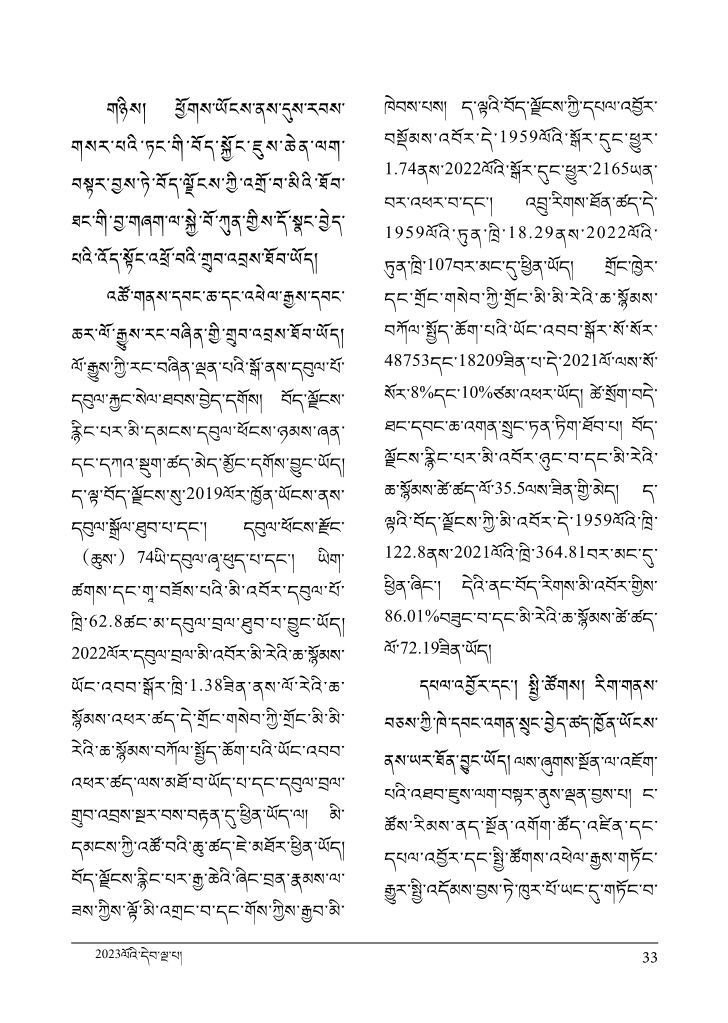 གཉིས། ཕྱོགས་ཡོངས་ནས་དུས་རབས་
གསར་པའི་ཏང་གི་བོད་སྐྱོང་ཇུས་ཆེན་ལག་
བསྟར་བྱས་ཏེ་བོད་ལྗོངས་ཀྱི་འགྲོ་བ་མིའི་ཐོབ་
ཐང་གི་བྱ་གཞག་ལ་སྐྱེ་བོ་ཀུན་གྱིས་དོ་སྣང་བྱེད་
པའི་འོད་སྟོང་འཕྲོ་བའི་གྲུབ་འབྲས་ཐོབ་ཡོད།
འཚོ་གནས་དབང་ཆ་དང་འཕེལ་རྒྱས་དབང་
ཆར་ལོ་རྒྱུས་རང་བཞིན་གྱི་གྲུབ་འབྲས་ཐོབ་ཡོད།
ལོ་རྒྱུས་ཀྱི་རང་བཞིན་ལྡན་པའི་སྒོ་ནས་དབུལ་པོ་
དབུལ་རྐྱང་སེལ་ཐབས་བྱེད་དགོས། བོད་ལྗོངས་
རྙིང་པར་མི་དམངས་དབུལ་ཕོངས་ཉམས་ཞན་
དང་དཀའ་སྡུག་ཚད་མེད་མྱོང་དགོས་བྱུང་ཡོད།
ད་ལྟ་བོད་ལྗོངས་སུ་2019ལོར་ཁྱོན་ཡོངས་ནས་
དབུལ་སྒྲོལ་ཐུབ་པ་དང་། དབུལ་ཕོངས་རྫོང་
（ཆུས་）74ཡི་དབུལ་ཞྭ་ཕུད་པ་དང་། ཡིག་
ཚགས་དང་གྲྭ་བཟོས་པའི་མི་འབོར་དབུལ་པོ་
ཁྲི་62.8ཚང་མ་དབུལ་བྲལ་ཐུབ་པ་བྱུང་ཡོད།
2022ལོར་དབུལ་བྲལ་མི་འབོར་མི་རེའི་ཆ་སྙོམས་
ཡོང་འབབ་སྒོར་ཁྲི་1.38ཟིན་ནས་ལོ་རེའི་ཆ་
སྙོམས་འཕར་ཚད་དེ་གྲོང་གསེབ་ཀྱི་གྲོང་མི་མི་
རེའི་ཆ་སྙོམས་བཀོལ་སྤྱོད་ཆོག་པའི་ཡོང་འབབ་
འཕར་ཚད་ལས་མཐོ་བ་ཡོད་པ་དང་དབུལ་བྲལ་
གྲུབ་འབྲས་སྔར་བས་བརྟན་དུ་ཕྱིན་ཡོད་ལ། མི་
དམངས་ཀྱི་འཚོ་བའི་ཆུ་ཚད་ཇེ་མཐོར་ཕྱིན་ཡོད།
བོད་ལྗོངས་རྙིང་པར་རྒྱ་ཆེའི་ཞིང་བྲན་རྣམས་ལ་
ཟས་ཀྱིས་ལྟོ་མི་འགྲང་བ་དང་གོས་ཀྱིས་རྒྱབ་མི་
ཁེབས་པས། ད་ལྟའི་བོད་ལྗོངས་ཀྱི་དཔལ་འབྱོར་
བསྡོམས་འབོར་དེ་1959ལོའི་སྒོར་དུང་ཕྱུར་
1.74ནས་2022ལོའི་སྒོར་དུང་ཕྱུར་2165ཡན་
བར་འཕར་བ་དང་། འབྲུ་རིགས་ཐོན་ཚད་དེ་
1959ལོའི་ཏུན་ཁྲི་18.29ནས་2022ལོའི་
ཏུན་ཁྲི་107བར་མང་དུ་ཕྱིན་ཡོད། གྲོང་ཁྱེར་
དང་གྲོང་གསེབ་ཀྱི་གྲོང་མི་མི་རེའི་ཆ་སྙོམས་
བཀོལ་སྤྱོད་ཆོག་པའི་ཡོང་འབབ་སྒོར་སོ་སོར་
48753དང་18209ཟིན་པ་དེ་2021ལོ་ལས་སོ་
སོར་8%དང་10%ཙམ་འཕར་ཡོད། ཚེ་སྲོག་བདེ་
ཐང་དབང་ཆ་འགན་སྲུང་ཏན་ཏིག་ཐོབ་པ། བོད་
ལྗོངས་རྙིང་པར་མི་འབོར་ཉུང་བ་དང་མི་རེའི་
ཆ་སྙོམས་ཚེ་ཚད་ལོ་35.5ལས་ཟིན་གྱི་མེད། ད་
ལྟའི་བོད་ལྗོངས་ཀྱི་མི་འབོར་དེ་1959ལོའི་ཁྲི་
122.8ནས་2021ལོའི་ཁྲི་364.81བར་མང་དུ་
ཕྱིན་ཞིང་། དེའི་ནང་བོད་རིགས་མི་འབོར་གྱིས་
86.01%བཟུང་བ་དང་མི་རེའི་ཆ་སྙོམས་ཚེ་ཚད་
ལོ་72.19ཟིན་ཡོད།
དཔལ་འབྱོར་དང་། སྤྱི་ཚོགས། རིག་གནས་
བཅས་ཀྱི་ཁེ་དབང་འགན་སྲུང་བྱེད་ཚད་ཁྱོན་ཡོངས་
ནས་ཡར་ཐོན་བྱུང་ཡོད། ལས་ཞུགས་སྔོན་ལ་འཇོག་
པའི་འཐབ་ཇུས་ལག་བསྟར་ནུས་ལྡན་བྱས་པ། ང་
ཚོས་རིམས་ནད་སྔོན་འགོག་ཚོད་འཛིན་དང་
དཔལ་འབྱོར་དང་སྤྱི་ཚོགས་འཕེལ་རྒྱས་གཏོང་
རྒྱུར་སྤྱི་འདོམས་བྱས་ཏེ་ཁུར་པོ་ཡང་དུ་གཏོང་བ་
2023ལོའི་དེབ་ལྔ་པ།
33